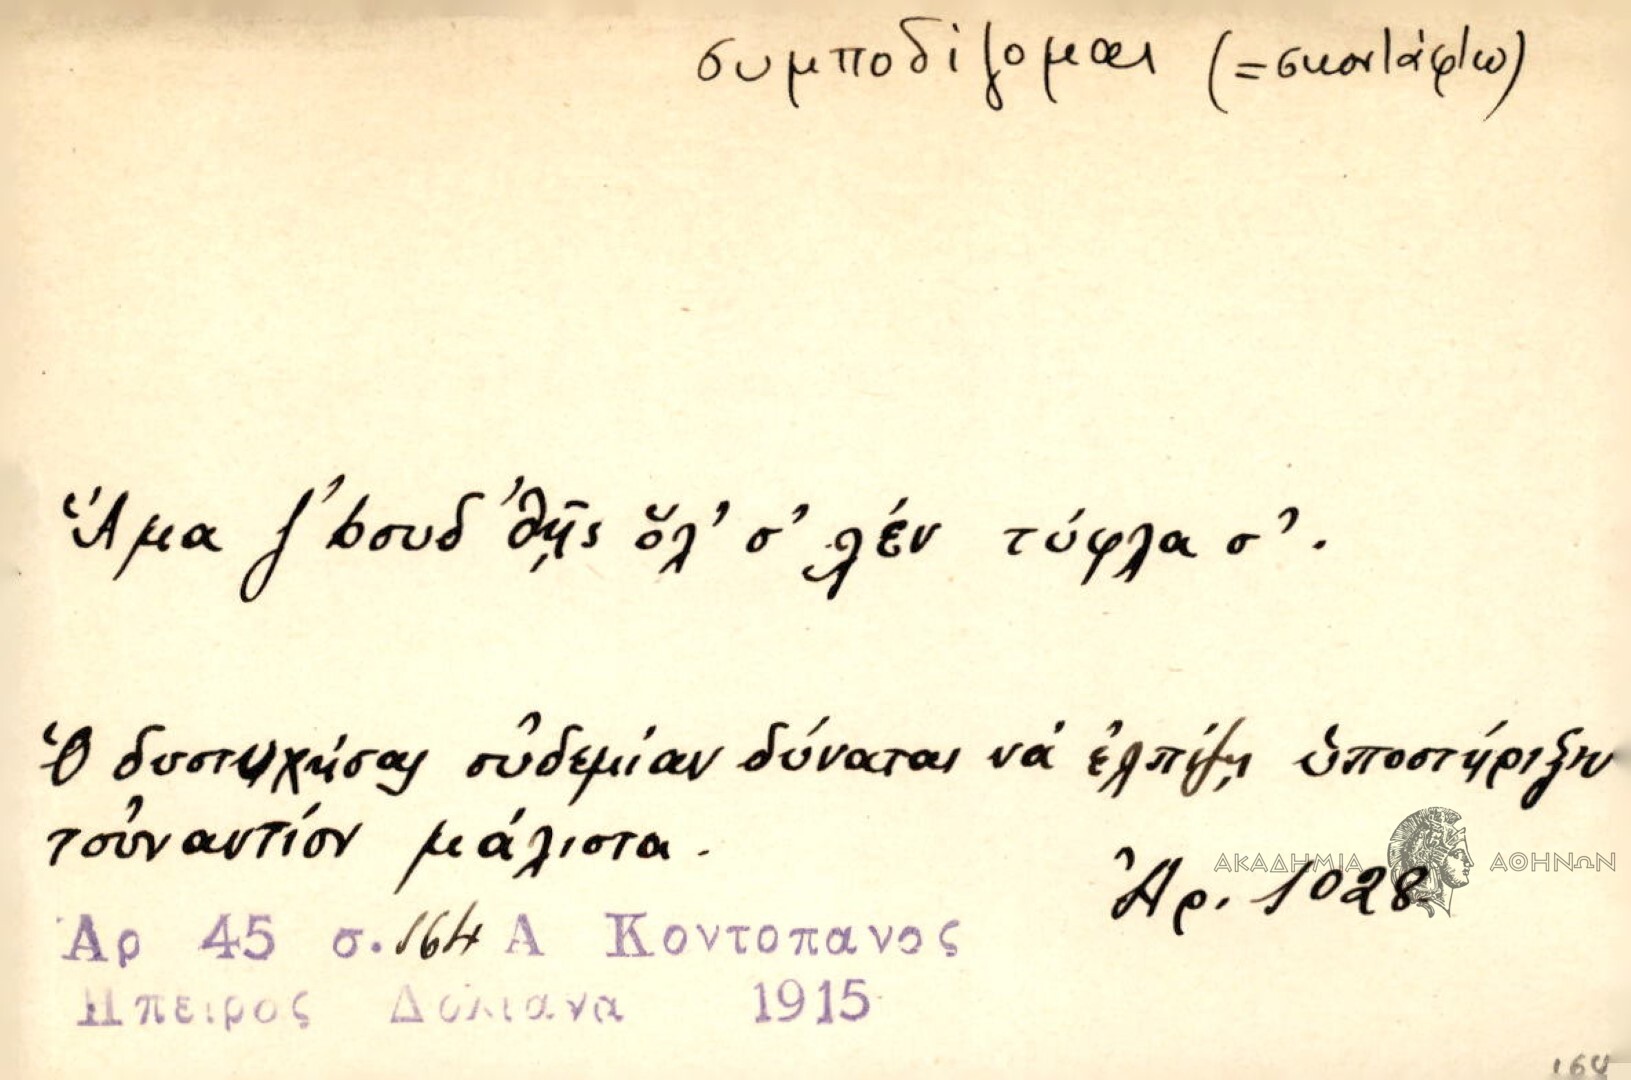 συμποδίζομαι (=σκοντάφτω)
Ἅμα ζ'bουδ'θῇς ὅλ' σ' λέν τύφλα σ'.
Ὁ δυστυχήσας οὐδεμίαν δύναται νά ἐλπίζῃ ὑποστήριξιν
τοὐναντίον μάλιστα.
Ἀρ. 1028
ΑΚΑΔΗΜΙΑ ΑΘΗΝΩΝ
Αρ 45 σ. 164 Α Κοντοπανος
Ηπειρος Δολιανα 1915
164